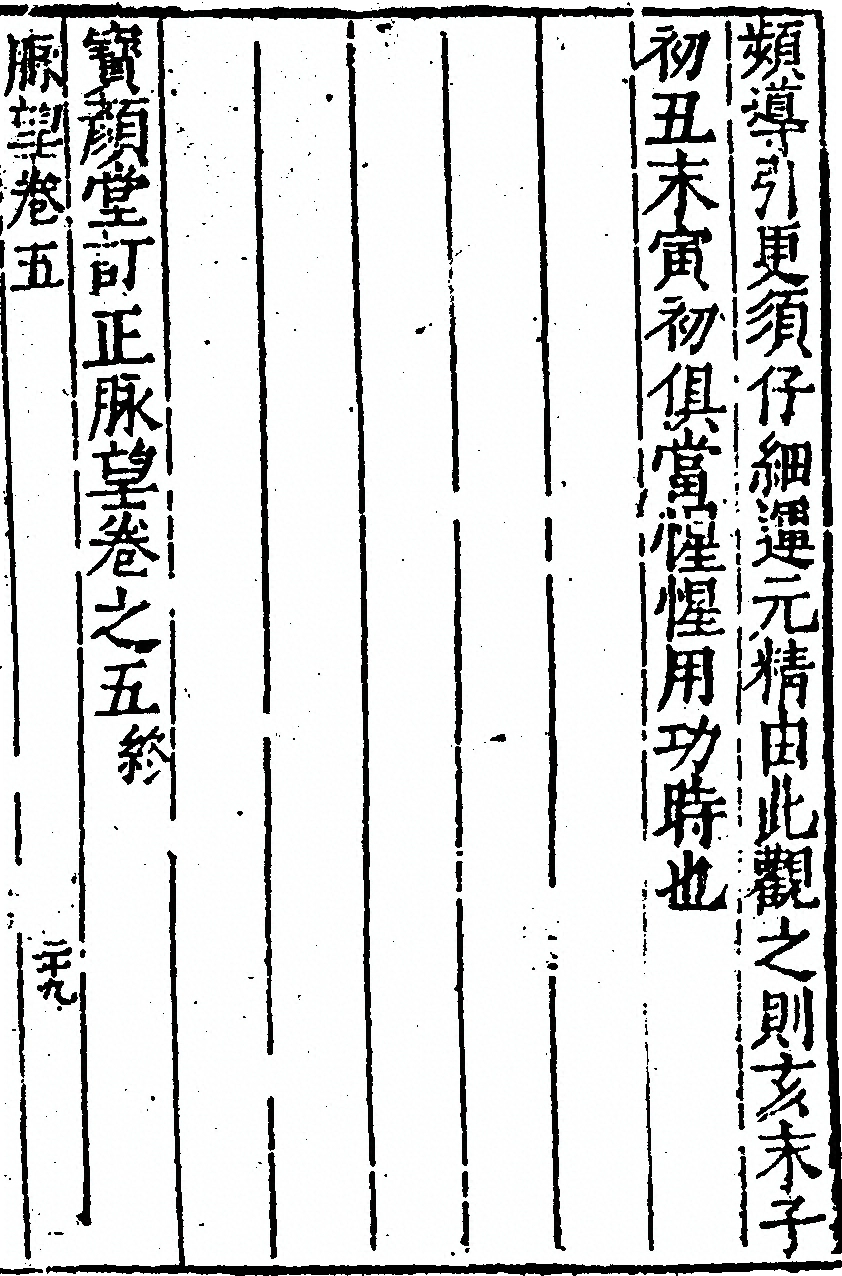 頻導引更須仔細運元精由此觀之則亥末子
初丑末寅初俱當惺惺用功時也
寶顏堂訂正脉望卷之五終
脉望卷五
二十九